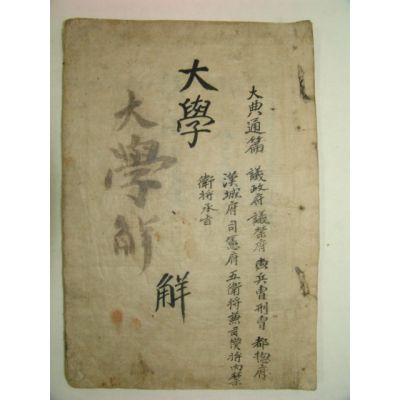 大典通篇 議政府 議禁府 兵曺刑曺 都摠府
漢城府 司憲府 五衛將兼司僕將內禁
衛將承旨
大學
解
大學解